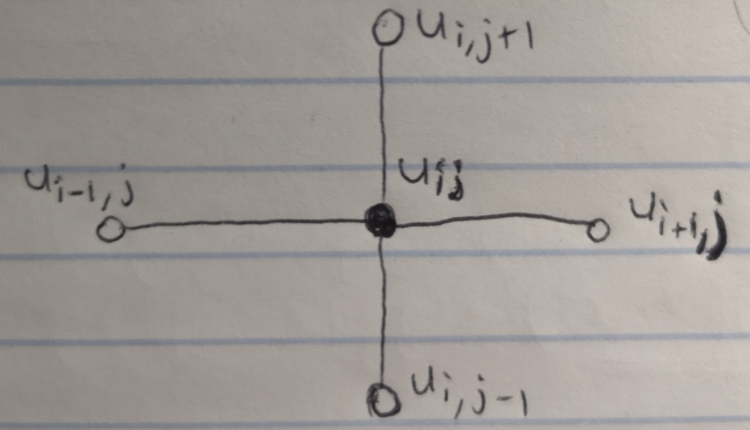 u_{i,j+1}
u_{i-1,j}
u_{ij}
u_{i+1,j}
u_{i,j-1}